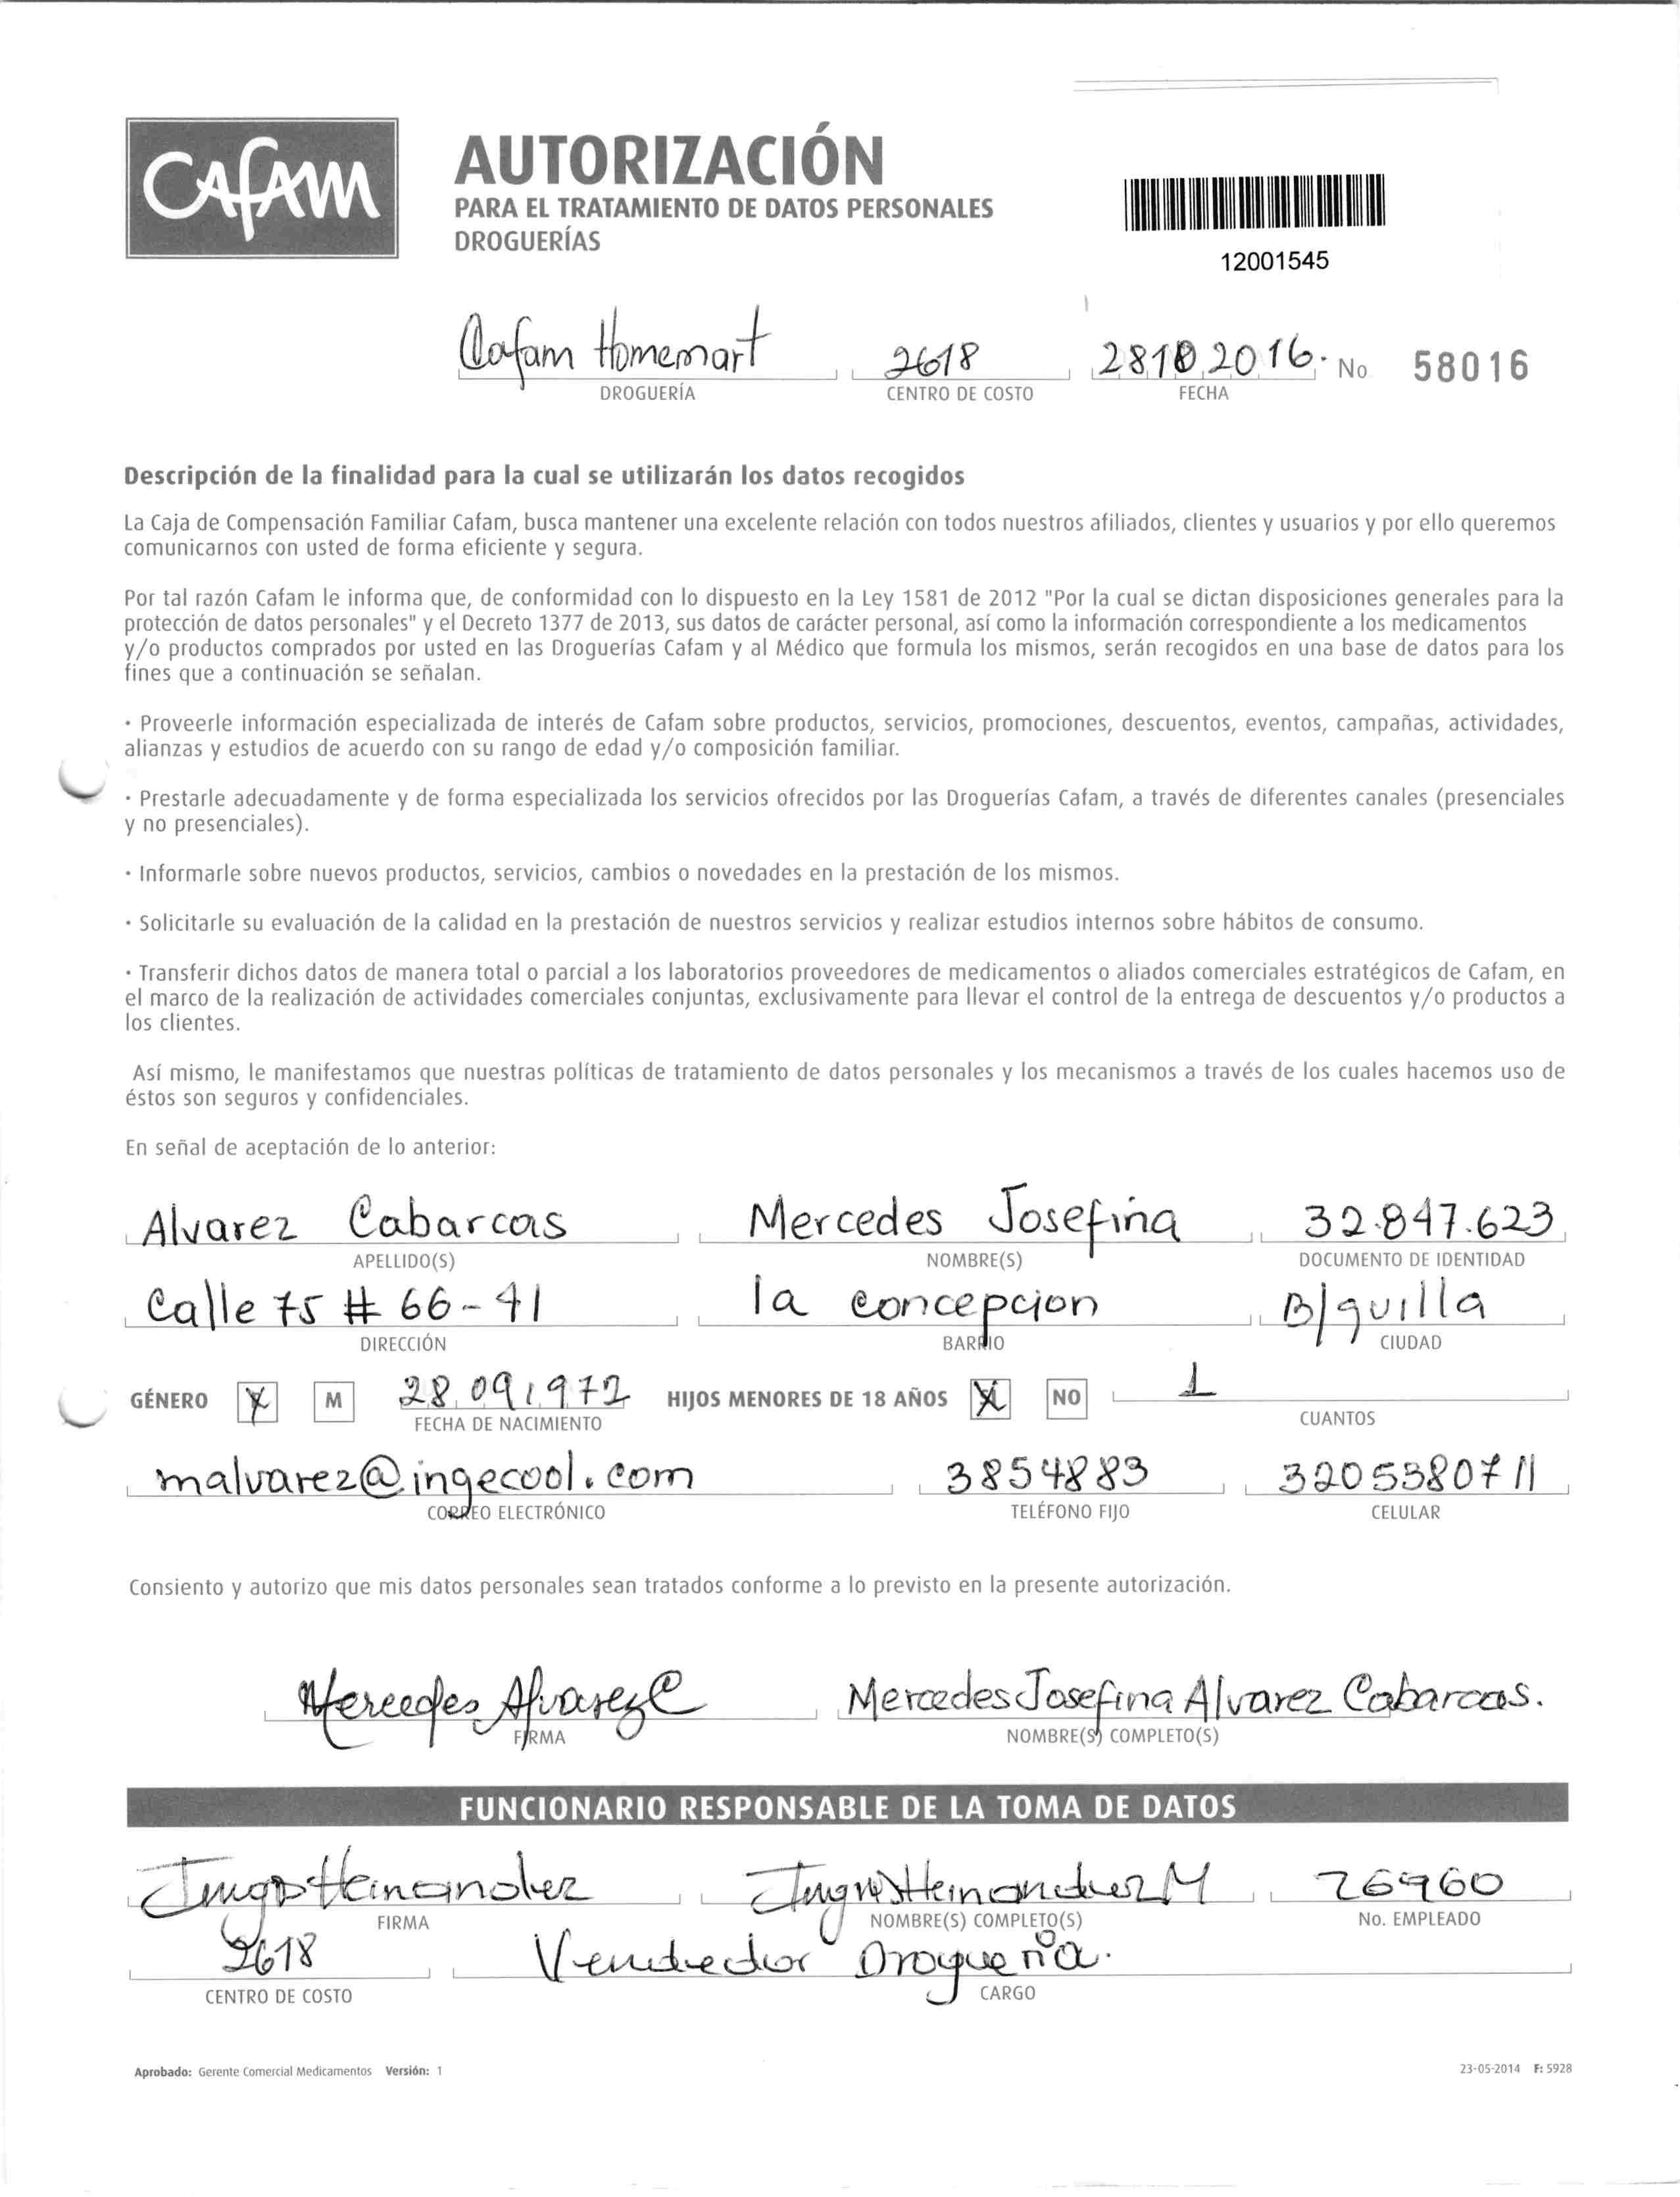 CAFAM
AUTORIZACIÓN
PARA EL TRATAMIENTO DE DATOS PERSONALES
DROGUERÍAS
12001545
Cafam Homemart 2618 28102016. No 58016
DROGUERÍA CENTRO DE COSTO FECHA
Descripción de la finalidad para la cual se utilizarán los datos recogidos
La Caja de Compensación Familiar Cafam, busca mantener una excelente relación con todos nuestros afiliados, clientes y usuarios y por ello queremos
comunicarnos con usted de forma eficiente y segura.
Por tal razón Cafam le informa que, de conformidad con lo dispuesto en la Ley 1581 de 2012 "Por la cual se dictan disposiciones generales para la
protección de datos personales" y el Decreto 1377 de 2013, sus datos de carácter personal, así como la información correspondiente a los medicamentos
y/o productos comprados por usted en las Droguerías Cafam y al Médico que formula los mismos, serán recogidos en una base de datos para los
fines que a continuación se señalan.
· Proveerle información especializada de interés de Cafam sobre productos, servicios, promociones, descuentos, eventos, campañas, actividades,
alianzas y estudios de acuerdo con su rango de edad y/o composición familiar.
· Prestarle adecuadamente y de forma especializada los servicios ofrecidos por las Droguerías Cafam, a través de diferentes canales (presenciales
y no presenciales).
· Informarle sobre nuevos productos, servicios, cambios o novedades en la prestación de los mismos.
· Solicitarle su evaluación de la calidad en la prestación de nuestros servicios y realizar estudios internos sobre hábitos de consumo.
· Transferir dichos datos de manera total o parcial a los laboratorios proveedores de medicamentos o aliados comerciales estratégicos de Cafam, en
el marco de la realización de actividades comerciales conjuntas, exclusivamente para llevar el control de la entrega de descuentos y/o productos a
los clientes.
Así mismo, le manifestamos que nuestras políticas de tratamiento de datos personales y los mecanismos a través de los cuales hacemos uso de
éstos son seguros y confidenciales.
En señal de aceptación de lo anterior:
Alvarez Cabarcas Mercedes Josefina 32.847.623
APELLIDO(S) NOMBRE(S) DOCUMENTO DE IDENTIDAD
Calle 75 # 66-41 la concepcion B/quilla
DIRECCIÓN BARRIO CIUDAD
GÉNERO X M 28 09 1972 HIJOS MENORES DE 18 AÑOS X NO 1
FECHA DE NACIMIENTO CUANTOS
malvarez@ingecool.com 3854883 3205380711
CORREO ELECTRÓNICO TELÉFONO FIJO CELULAR
Consiento y autorizo que mis datos personales sean tratados conforme a lo previsto en la presente autorización.
Mercedes Alvarez C Mercedes Josefina Alvarez Cabarcas.
FIRMA NOMBRE(S) COMPLETO(S)
FUNCIONARIO RESPONSABLE DE LA TOMA DE DATOS
Hernandez Hernandez M 26960
FIRMA NOMBRE(S) COMPLETO(S) No. EMPLEADO
2618 Vendedor Droguería.
CENTRO DE COSTO CARGO
Aprobado: Gerente Comercial Medicamentos Versión: 1 23-05-2014 F: 5928